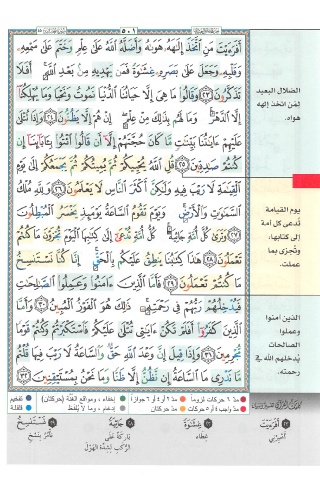 ٥٠١
أَفَرَءَيْتَ مَنِ ٱتَّخَذَ إِلَٰهَهُۥ هَوَىٰهُ وَأَضَلَّهُ ٱللَّهُ عَلَىٰ عِلْمٍ وَخَتَمَ عَلَىٰ سَمْعِهِۦ
وَقَلْبِهِۦ وَجَعَلَ عَلَىٰ بَصَرِهِۦ غِشَٰوَةً فَمَن يَهْدِيهِ مِنۢ بَعْدِ ٱللَّهِ أَفَلَا
تَذَكَّرُونَ ٢٣ وَقَالُوا۟ مَا هِىَ إِلَّا حَيَاتُنَا ٱلدُّنْيَا نَمُوتُ وَنَحْيَا وَمَا يُهْلِكُنَآ
إِلَّا ٱلدَّهْرُ وَمَا لَهُم بِذَٰلِكَ مِنْ عِلْمٍ إِنْ هُمْ إِلَّا يَظُنُّونَ ٢٤ وَإِذَا تُتْلَىٰ
عَلَيْهِمْ ءَايَٰتُنَا بَيِّنَٰتٍ مَّا كَانَ حُجَّتَهُمْ إِلَّآ أَن قَالُوا۟ ٱئْتُوا۟ بِـَٔابَآئِنَآ إِن
كُنتُمْ صَٰدِقِينَ ٢٥ قُلِ ٱللَّهُ يُحْيِيكُمْ ثُمَّ يُمِيتُكُمْ ثُمَّ يَجْمَعُكُمْ إِلَىٰ يَوْمِ
ٱلْقِيَٰمَةِ لَا رَيْبَ فِيهِ وَلَٰكِنَّ أَكْثَرَ ٱلنَّاسِ لَا يَعْلَمُونَ ٢٦ وَلِلَّهِ مُلْكُ
ٱلسَّمَٰوَٰتِ وَٱلْأَرْضِ وَيَوْمَ تَقُومُ ٱلسَّاعَةُ يَوْمَئِذٍ يَخْسَرُ ٱلْمُبْطِلُونَ
٢٧ وَتَرَىٰ كُلَّ أُمَّةٍ جَاثِيَةً كُلُّ أُمَّةٍ تُدْعَىٰٓ إِلَىٰ كِتَٰبِهَا ٱلْيَوْمَ تُجْزَوْنَ مَا كُنتُمْ
تَعْمَلُونَ ٢٨ هَٰذَا كِتَٰبُنَا يَنطِقُ عَلَيْكُم بِٱلْحَقِّ إِنَّا كُنَّا نَسْتَنسِخُ
مَا كُنتُمْ تَعْمَلُونَ ٢٩ فَأَمَّا ٱلَّذِينَ ءَامَنُوا۟ وَعَمِلُوا۟ ٱلصَّٰلِحَٰتِ
فَيُدْخِلُهُمْ رَبُّهُمْ فِى رَحْمَتِهِۦ ذَٰلِكَ هُوَ ٱلْفَوْزُ ٱلْمُبِينُ ٣٠ وَأَمَّا
ٱلَّذِينَ كَفَرُوٓا۟ أَفَلَمْ تَكُنْ ءَايَٰتِى تُتْلَىٰ عَلَيْكُمْ فَٱسْتَكْبَرْتُمْ وَكُنتُمْ قَوْمًا
مُّجْرِمِينَ ٣١ وَإِذَا قِيلَ إِنَّ وَعْدَ ٱللَّهِ حَقٌّ وَٱلسَّاعَةُ لَا رَيْبَ فِيهَا قُلْتُم
مَّا نَدْرِى مَا ٱلسَّاعَةُ إِن نَّظُنُّ إِلَّا ظَنًّا وَمَا نَحْنُ بِمُسْتَيْقِنِينَ ٣٢
الضلال البعيد
لمَن اتخذ إلهه
هواه.
يوم القيامة
تُدعى كل أمة
إلى كتابها،
وتُجزى بما
عملت.
الذين آمنوا
وعملوا
الصالحات
يُدخلهم الله في
رحمته.
مدّ ٦ حركات لزوماً مدّ ٢ أو ٤ أو ٦ جوازاً إخفاء، ومواقع الغُنَّة (حركتان) تفخيم
مدّ واجب ٤ أو ٥ حركات مدّ حركتان إدغام، وما لا يُلفَظ قلقلة
٢٣ أَفَرَأَيْتَ
أخْبِرْني
٢٣ غِشَاوَةً
غِطاء
٢٨ جَاثِيَةً
بَارِكَةً عَلَى
الرُّكَبِ لِشِدَّةِ الهَوْلِ
٢٩ نَسْتَنسِخُ
نَأْمُرُ بِنَسْخِ